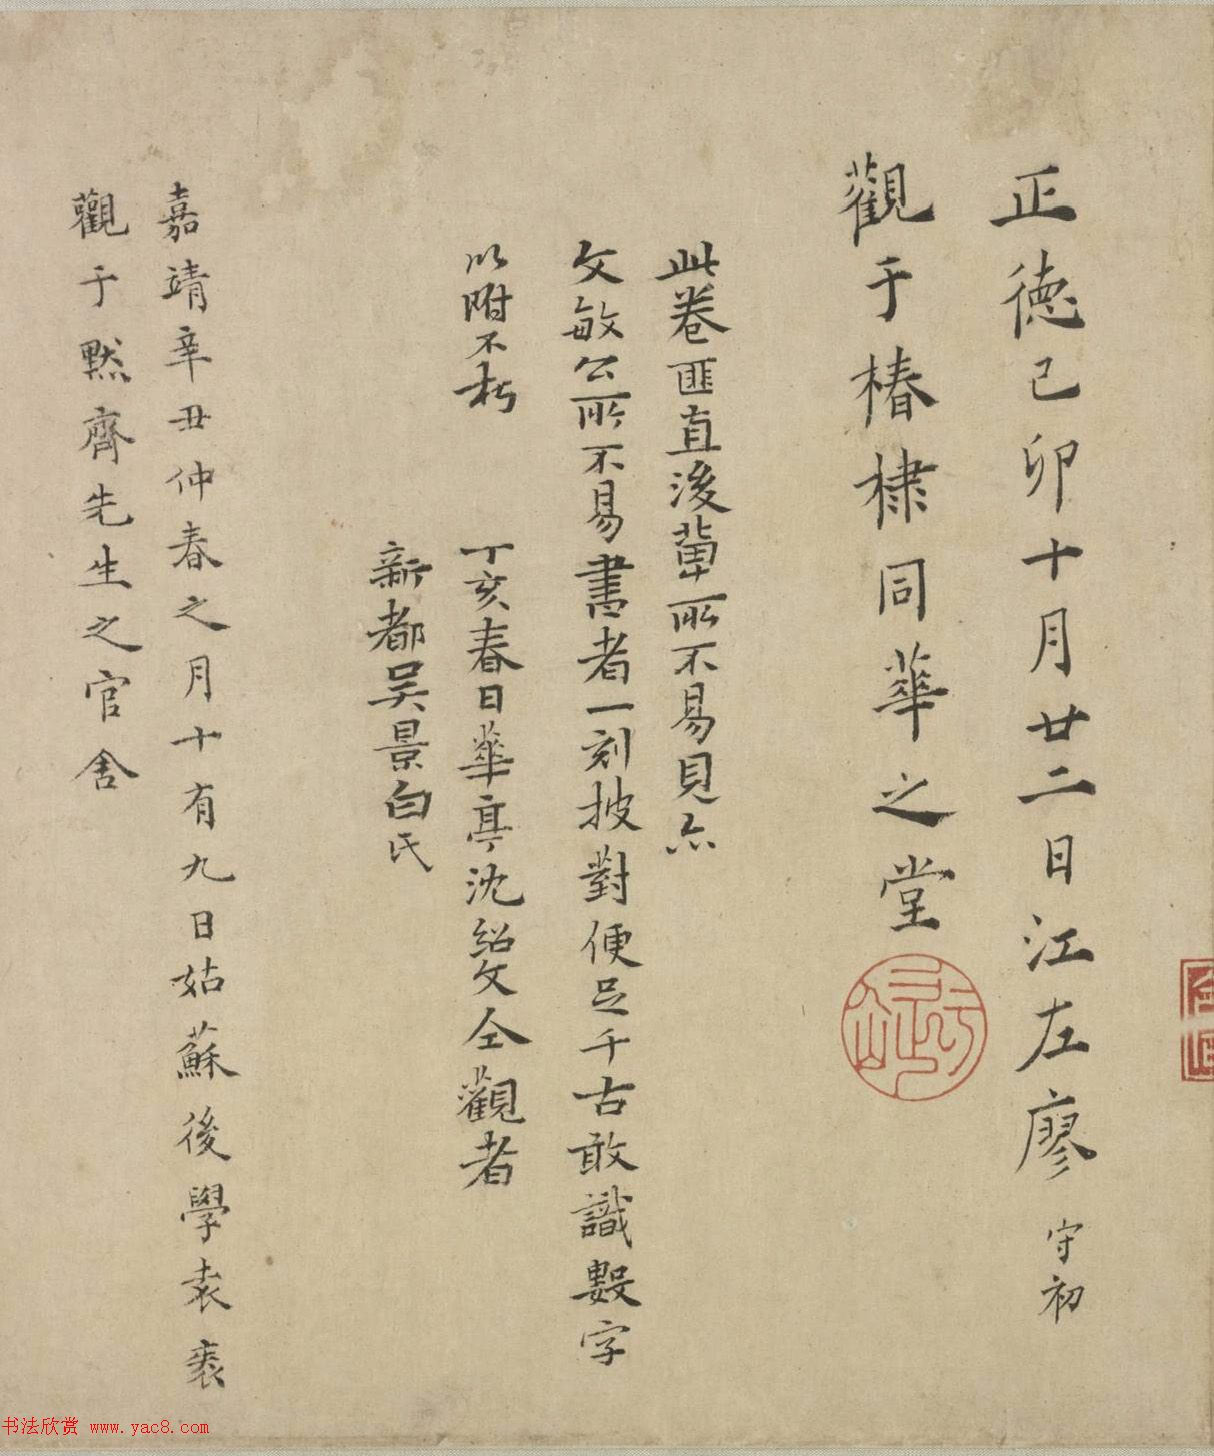 正德己卯十月廿二日江左廖守初
觀于椿棣同華之堂
此卷匪直後輩所不易見亦
文敏公所不易書者一刻披對便足千古敢識數字
以附不朽
丁亥春日華亭沈紹文仝觀者
新都吳景伯氏
嘉靖辛丑仲春之月十有九日姑蘇後學袁袠
觀于默齋先生之官舍
书法欣赏 www.yac8.com